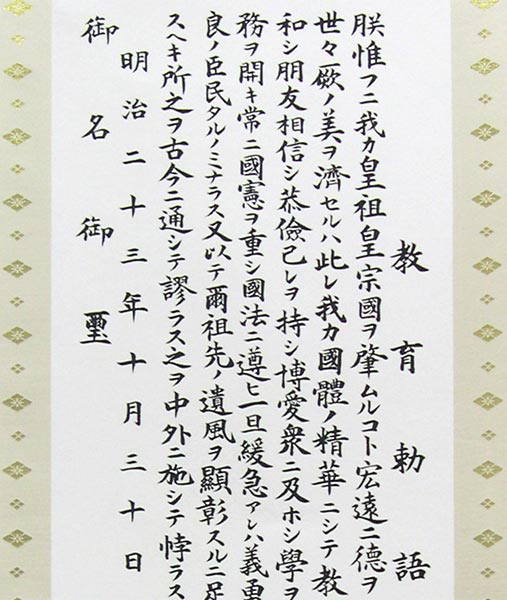 教育勅語
朕惟フニ我カ皇祖皇宗國ヲ肇ムルコト宏遠ニ德ヲ
世々厥ノ美ヲ濟セルハ此レ我カ國體ノ精華ニシテ教
和シ朋友相信シ恭儉己レヲ持シ博愛衆ニ及ホシ學ヲ
務ヲ開キ常ニ國憲ヲ重シ國法ニ遵ヒ一旦緩急アレハ義勇
良ノ臣民タルノミナラス又以テ爾祖先ノ遺風ヲ顯彰スルニ足
スヘキ所之ヲ古今ニ通シテ謬ラス之ヲ中外ニ施シテ悖ラス
明治二十三年十月三十日
御名御璽